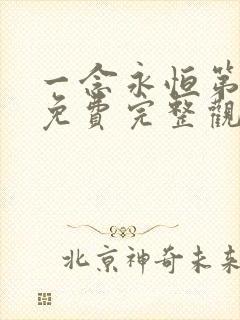 一念永恒第
免費完整觀
北京神奇未来